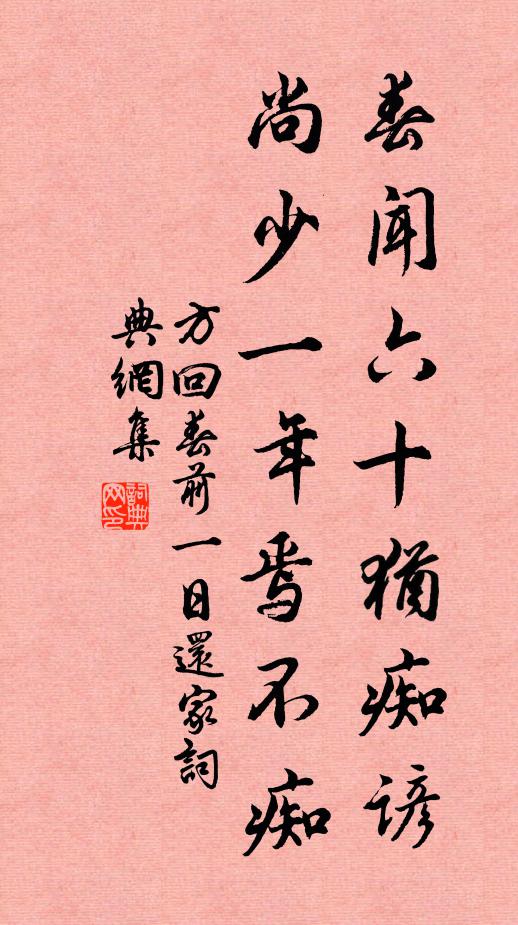 春聞六十猶痴諺
尚少一年焉不痴
方回春前一日還家詞
典網集
詞典網印